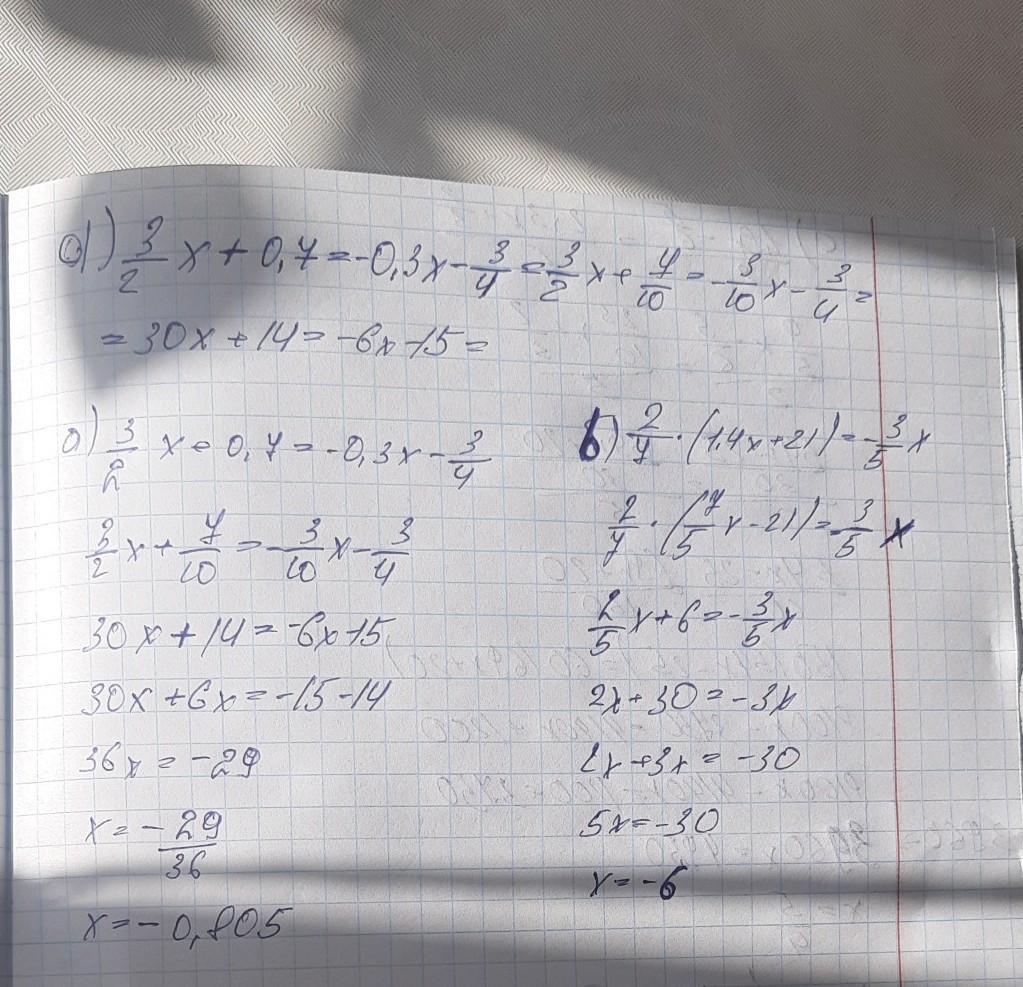 а) 3/2 x + 0,7 = -0,3x - 3/4 = 3/2 x + 7/10 = -3/10 x - 3/4 =
= 30x + 14 = -6x - 15 =
а) 3/2 x + 0,7 = -0,3x - 3/4
3/2 x + 7/10 = -3/10 x - 3/4
30x + 14 = -6x - 15
30x + 6x = -15 - 14
36x = -29
x = - 29/36
x = - 0,805
б) 2/7 · (1,4x + 21) = -3/5 x
2/7 · (7/5 x - 21) = -3/5 x
2/5 x + 6 = -3/5 x
2x + 30 = -3x
2x + 3x = -30
5x = -30
x = -6